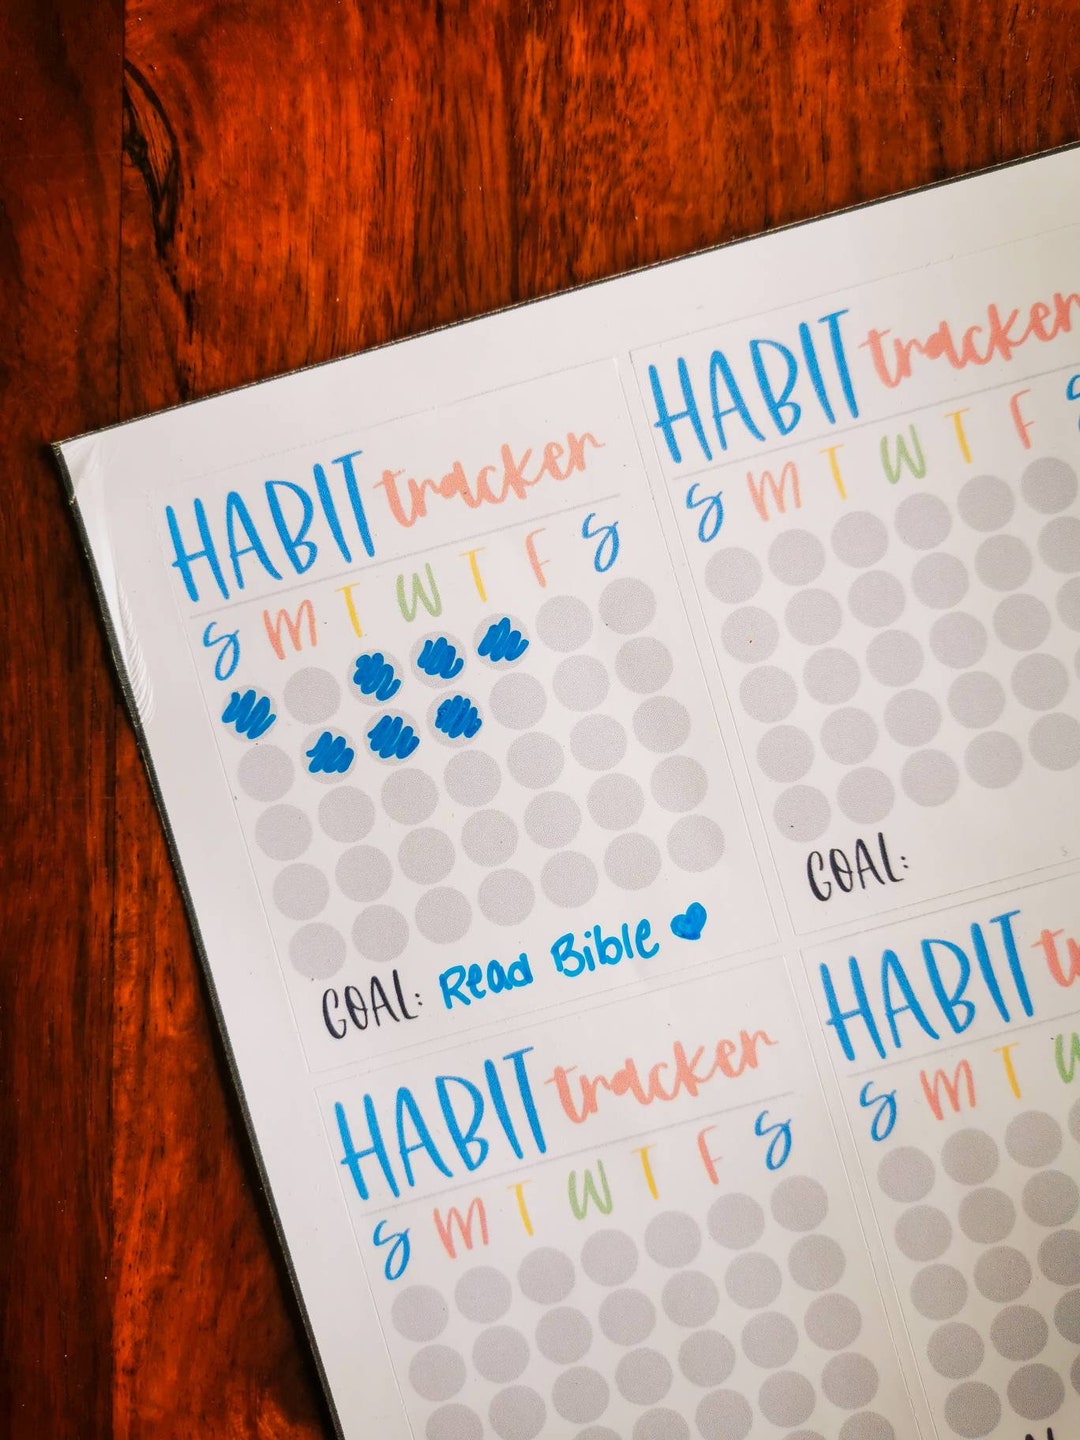 HABIT tracker
S M T W T F S
GOAL: Read Bible
HABIT tracker
S M T W T F S
GOAL:
HABIT tracker
S M T W T F S
HABIT
S M T W